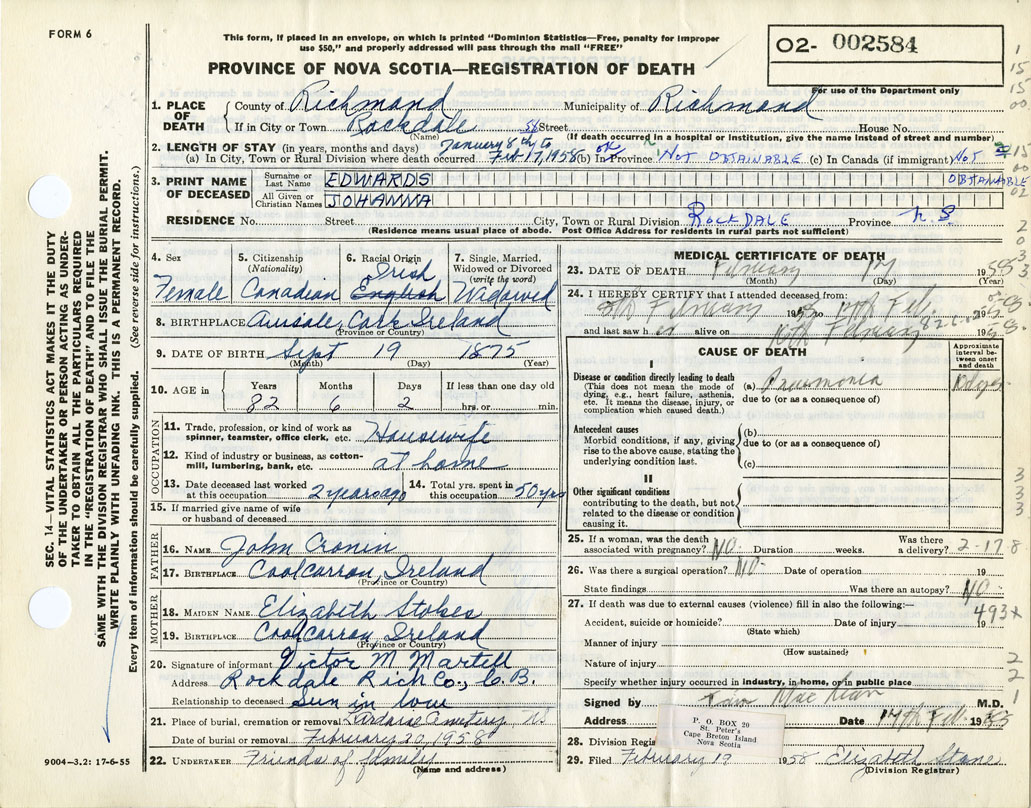 FORM 6
This form, if placed in an envelope, on which is printed "Dominion Statistics—Free, penalty for improper
use $50," and properly addressed will pass through the mail "FREE"
PROVINCE OF NOVA SCOTIA—REGISTRATION OF DEATH
02- 002584
For use of the Department only
SEC. 14—VITAL STATISTICS ACT MAKES IT THE DUTY
OF THE UNDERTAKER OR PERSON ACTING AS UNDER-
TAKER TO OBTAIN ALL THE PARTICULARS REQUIRED
IN THE "REGISTRATION OF DEATH" AND TO FILE THE
SAME WITH THE DIVISION REGISTRAR WHO SHALL ISSUE THE BURIAL PERMIT.
WRITE PLAINLY WITH UNFADING INK. THIS IS A PERMANENT RECORD.
Every item of information should be carefully supplied. (See reverse side for instructions.)
1. PLACE OF DEATH
County of Richmond Municipality of Richmond
If in City or Town Rockdale 58 Street House No.
(Name) (If death occurred in a hospital or institution, give the name instead of street and number)
2. LENGTH OF STAY (in years, months and days) January 8th to
(a) In City, Town or Rural Division where death occurred Feb 17, 1958 (b) In Province Not OBTAINABLE (c) In Canada (if immigrant) NOT
OBTAINABLE
3. PRINT NAME OF DECEASED
Surname or Last Name EDWARDS
All Given or Christian Names JOHANNA
RESIDENCE No. Street City, Town or Rural Division ROCKDALE Province N.S.
(Residence means usual place of abode. Post Office Address for residents in rural parts not sufficient)
4. Sex
Female
5. Citizenship
(Nationality)
Canadian
6. Racial Origin
Irish
English
7. Single, Married,
Widowed or Divorced
(write the word)
Widowed
8. BIRTHPLACE Cork Ireland
(Province or Country)
9. DATE OF BIRTH Sept 19 1875
(Month) (Day) (Year)
10. AGE in
Years Months Days If less than one day old
82 6 2 hrs. or min.
OCCUPATION
11. Trade, profession, or kind of work as
spinner, teamster, office clerk, etc. Housewife
12. Kind of industry or business, as cotton-
mill, lumbering, bank, etc. at home
13. Date deceased last worked
at this occupation 2 years ago
14. Total yrs. spent in
this occupation 50 yrs
15. If married give name of wife
or husband of deceased
FATHER
16. NAME John Cronin
17. BIRTHPLACE Coolcarron, Ireland
(Province or Country)
MOTHER
18. MAIDEN NAME Elizabeth Stokes
19. BIRTHPLACE Coolcarron, Ireland
(Province or Country)
20. Signature of informant Victor M Martell
Address Rockdale Rich Co., C.B.
Relationship to deceased Sun in law
21. Place of burial, cremation or removal Cemetery
Date of burial or removal February 20, 1958
22. UNDERTAKER Friends of family
(Name and address)
9004—3.2: 17-6-55
MEDICAL CERTIFICATE OF DEATH
23. DATE OF DEATH February 17 1958
(Month) (Day) (Year)
24. I HEREBY CERTIFY that I attended deceased from:
8th February 1958 to 17th Feb. 1958
and last saw her alive on 16th February 1958
CAUSE OF DEATH
Approximate
interval be-
tween onset
and death
I
Disease or condition directly leading to death
(This does not mean the mode of
dying, e.g., heart failure, asthenia,
etc. It means the disease, injury, or
complication which caused death.)
(a) Pneumonia
due to (or as a consequence of)
Antecedent causes
Morbid conditions, if any, giving
rise to the above cause, stating the
underlying condition last.
(b)
due to (or as a consequence of)
(c)
II
Other significant conditions
contributing to the death, but not
related to the disease or condition
causing it.
25. If a woman, was the death
associated with pregnancy? NO. Duration weeks. Was there
a delivery? 2-17 8
26. Was there a surgical operation? NO. Date of operation 19
State findings Was there an autopsy? NO
27. If death was due to external causes (violence) fill in also the following:—
493x
Accident, suicide or homicide? Date of injury 19
(State which)
Manner of injury
(How sustained)
Nature of injury
Specify whether injury occurred in industry, in home, or in public place
Signed by M.D.
Address Date 17th Feb. 1958
P. O. BOX 20
St. Peter's
Cape Breton Island
Nova Scotia
28. Division Regis
29. Filed February 19 1958 Elizabeth Stone
(Division Registrar)